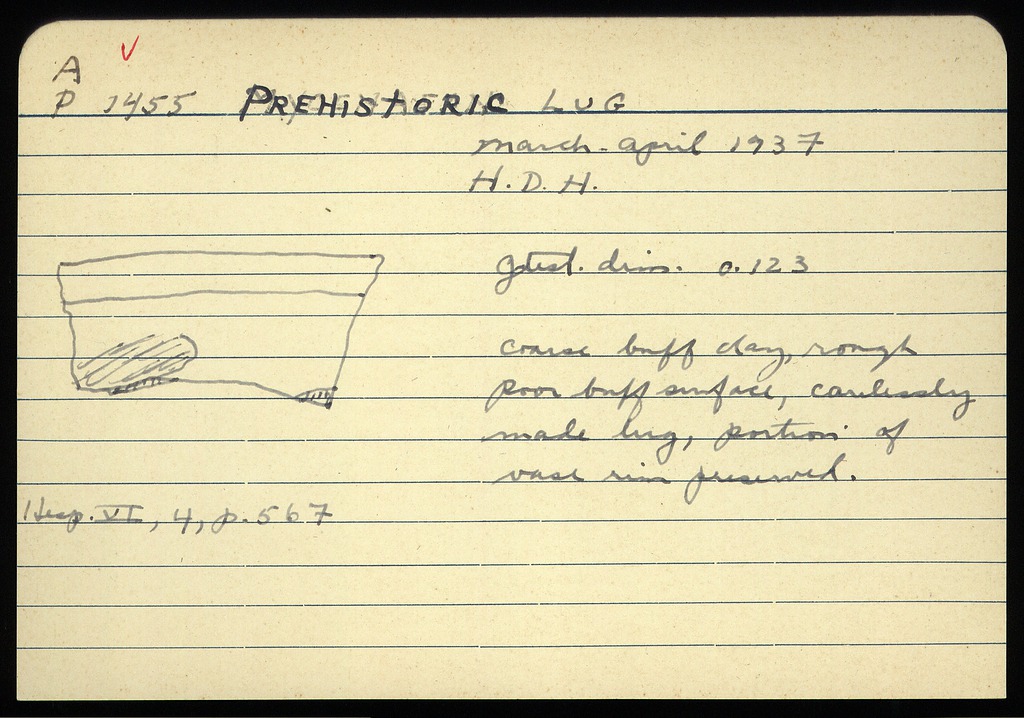 A
P 1455 PREHISTORIC LUG
march-april 1937
H.D.H.
gtest. dim. 0.123
coarse buff clay, rough
poor buff surface, carelessly
made lug, portion of
vase rim preserved.
Hesp. VI, 4, p. 567